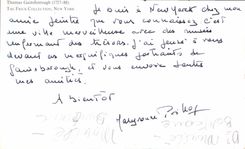 Thomas Gainsborough (1727-88)
THE FRICK COLLECTION, NEW YORK
Je suis à New York chez mon
amie peintre que vous connaissez c'est
une ville merveilleuse avec des musées
renfermant des trésors. J'ai pensé à vous
devant ces magnifiques portraits de
Gainsborough, et vous envoie toutes
mes amitiés.
A bientôt